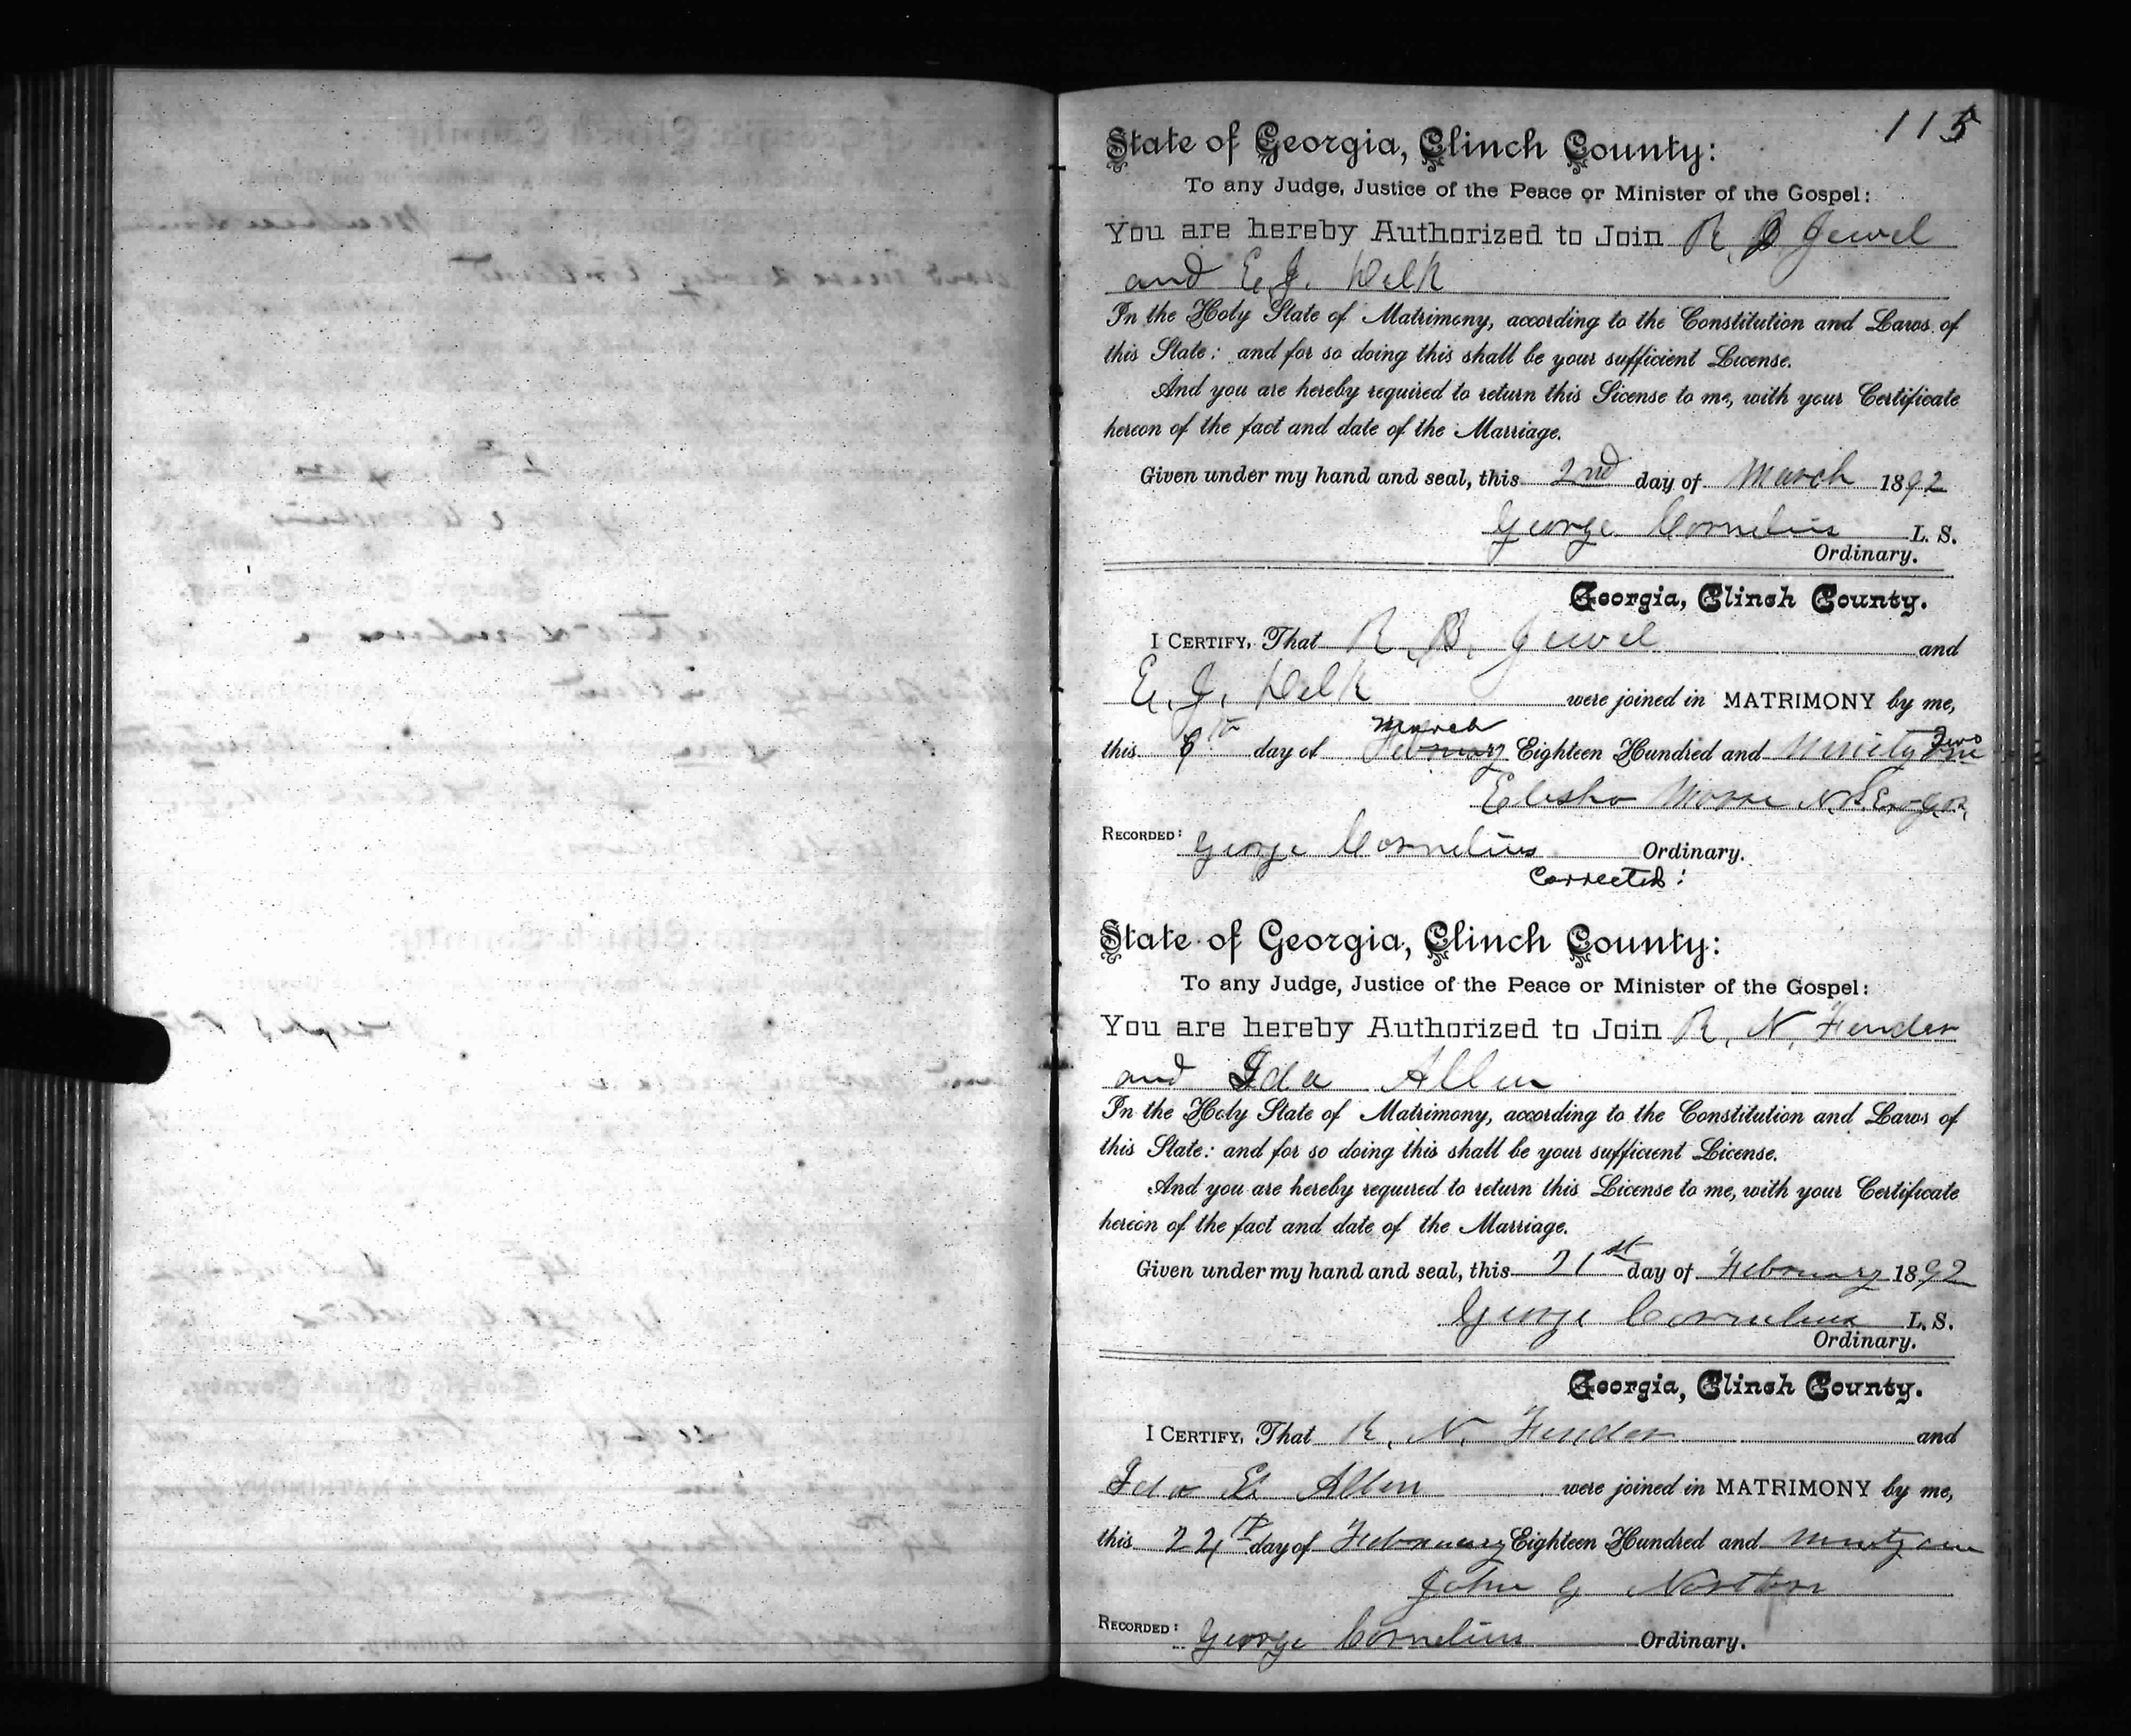 115
State of Georgia, Clinch County:
To any Judge, Justice of the Peace or Minister of the Gospel:
You are hereby Authorized to Join R. Jewel
and E. J. Delk
In the Holy State of Matrimony, according to the Constitution and Laws of
this State: and for so doing this shall be your sufficient License.
And you are hereby required to return this License to me, with your Certificate
hereon of the fact and date of the Marriage.
Given under my hand and seal, this 2nd day of March 1892
George Cornelius L. S.
Ordinary.
Georgia, Clinch County.
I CERTIFY, That R. B. Jewel and
E. J. Delk were joined in MATRIMONY by me,
March
this 6th day of February Eighteen Hundred and Ninety Two
Elisha
RECORDED: George Cornelius Ordinary.
Corrected:
State of Georgia, Clinch County:
To any Judge, Justice of the Peace or Minister of the Gospel:
You are hereby Authorized to Join R. N. Fender
and Ida Allen
In the Holy State of Matrimony, according to the Constitution and Laws of
this State: and for so doing this shall be your sufficient License.
And you are hereby required to return this License to me, with your Certificate
hereon of the fact and date of the Marriage.
Given under my hand and seal, this 21st day of February 1892
George Cornelius L. S.
Ordinary.
Georgia, Clinch County.
I CERTIFY, That R. N. Fender and
Ida E. Allen were joined in MATRIMONY by me,
this day of February Eighteen Hundred and
John G Norton
RECORDED: George Cornelius Ordinary.